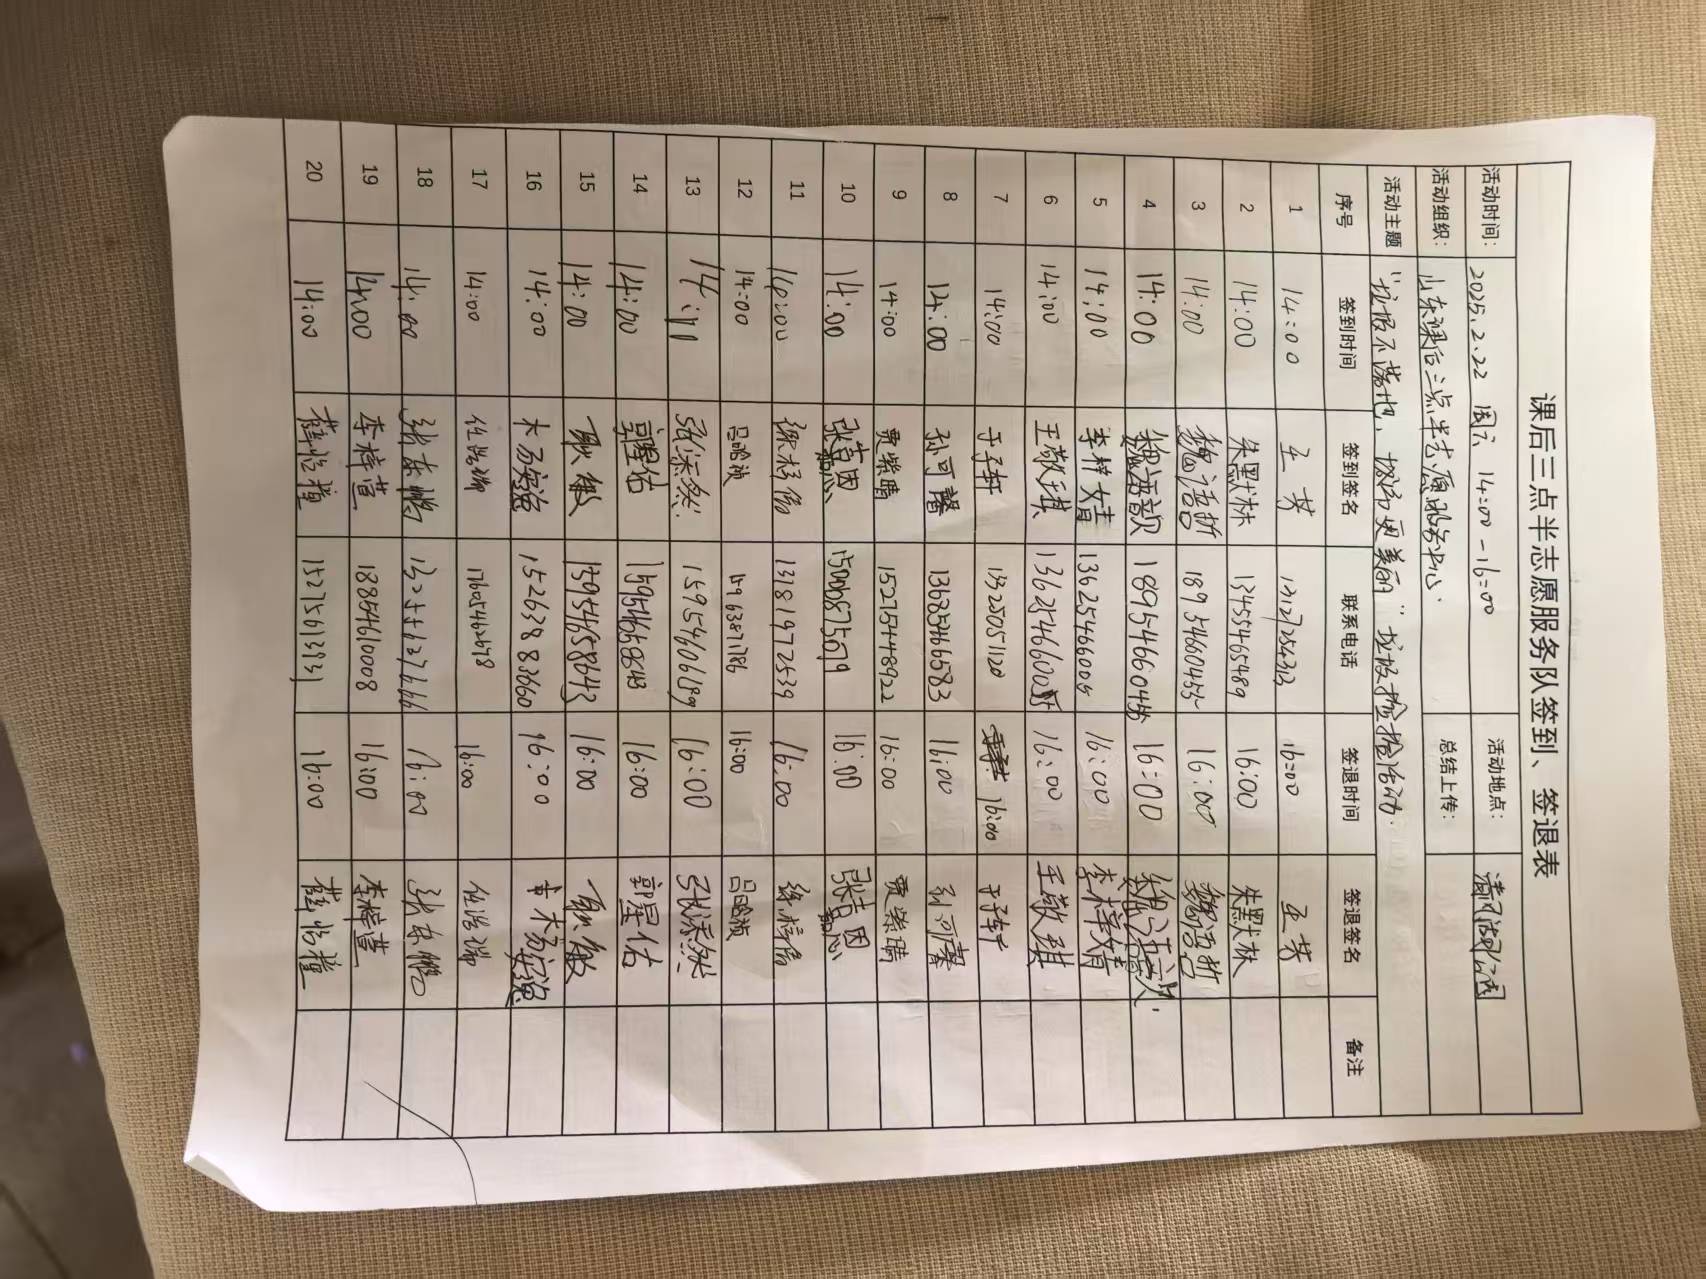 课后三点半志愿服务队签到、签退表
活动时间： 2025.2.22 周六 14:00-16:00 活动地点： 清风湖公园
活动组织： 山东课后三点半志愿服务中心. 总结上传：
活动主题 "垃圾不落地，城市更美丽"垃圾捡拾活动.
序号 签到时间 签到签名 联系电话 签退时间 签退签名 备注
1 14:00 王芳 16:00 王芳
2 14:00 朱默林 13455465489 16:00 朱默林
3 14:00 魏语折 18954660455 16:00 魏语折
4 14:00 18954660455 16:00
5 14:00 李梓婧 13625466005 16:00 李梓婧
6 14:00 王敬琪 16:00 王敬琪
7 14:00 于子轩 13225051120 16:00 于子轩
8 14:00 孙可馨 13635466583 16:00 孙可馨
9 14:00 贾紫晴 15275448922 16:00 贾紫晴
10 14:00 15006875679 16:00
11 13181972539 16:00
12 14:00 15963871786 16:00
13 张添然 15954606189 16:00 张添然
14 14:00 郭星佑 15954658643 16:00 郭星佑
15 14:00 耿敏 15954658643 16:00 耿敏
16 14:00 15263883660 16:00
17 14:00 任浩瑞 17605462678 16:00 任浩瑞
18 14:00 张东鹏 13255627666 16:00 张东鹏
19 14:00 李梓萱 18854610008 16:00 李梓萱
20 14:00 薛怡瞳 15275613931 16:00 薛怡瞳